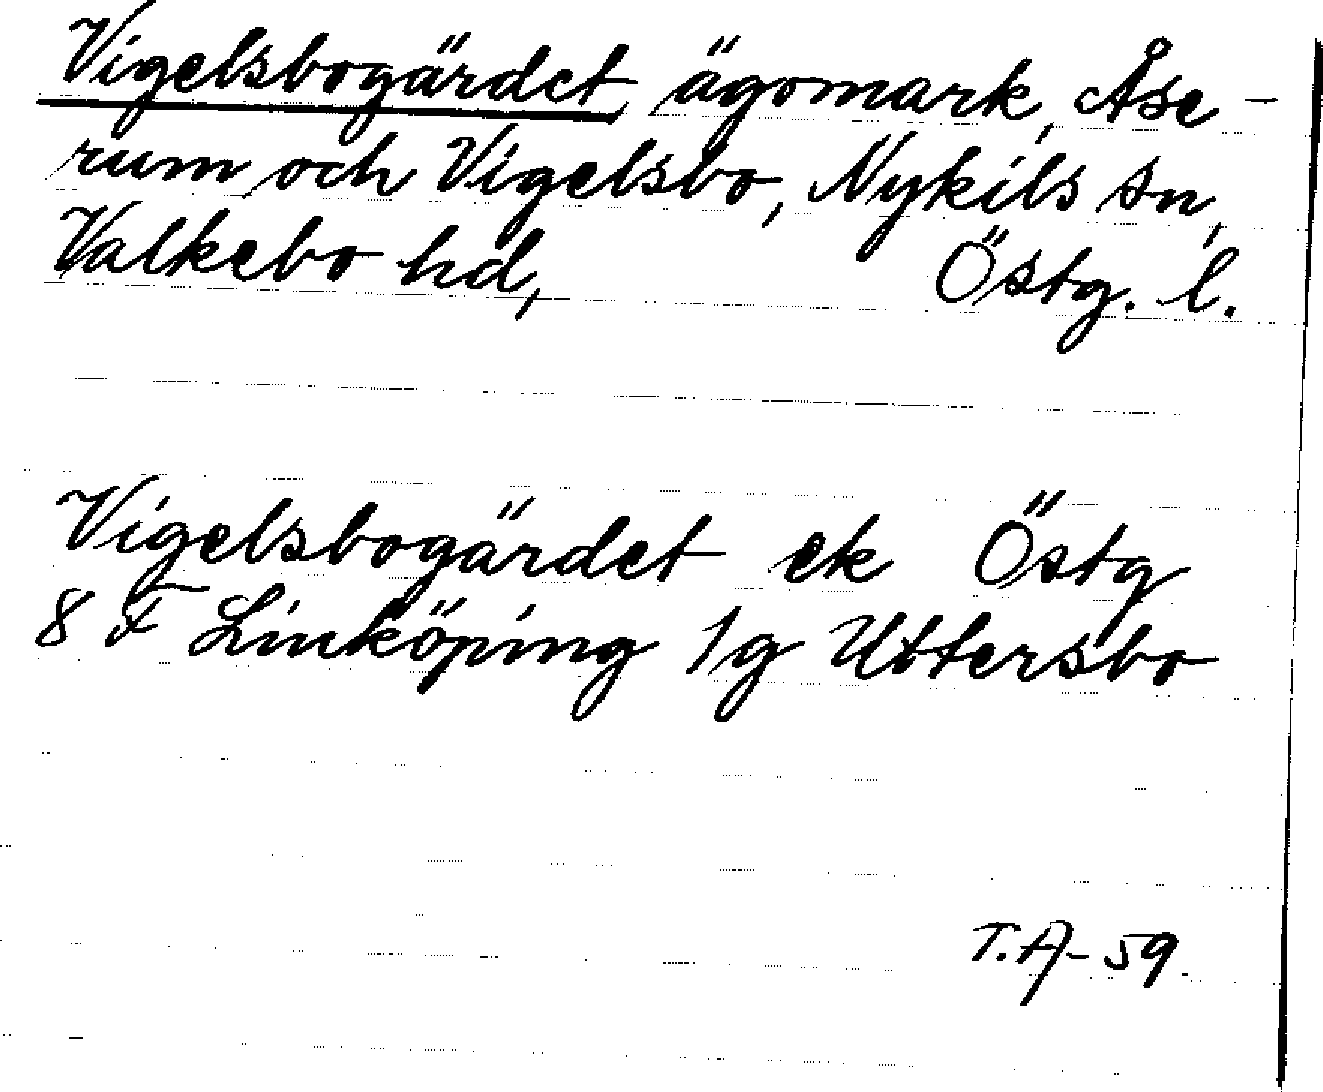 Vigelsbogärdet, ägomark, Åse-
rum och Vigelsbo, Nykils sn,
Valkebo hd, Östg. l.
Vigelsbogärdet ek Östg
8 F Linköping 1g Uttersbo
T.A-59